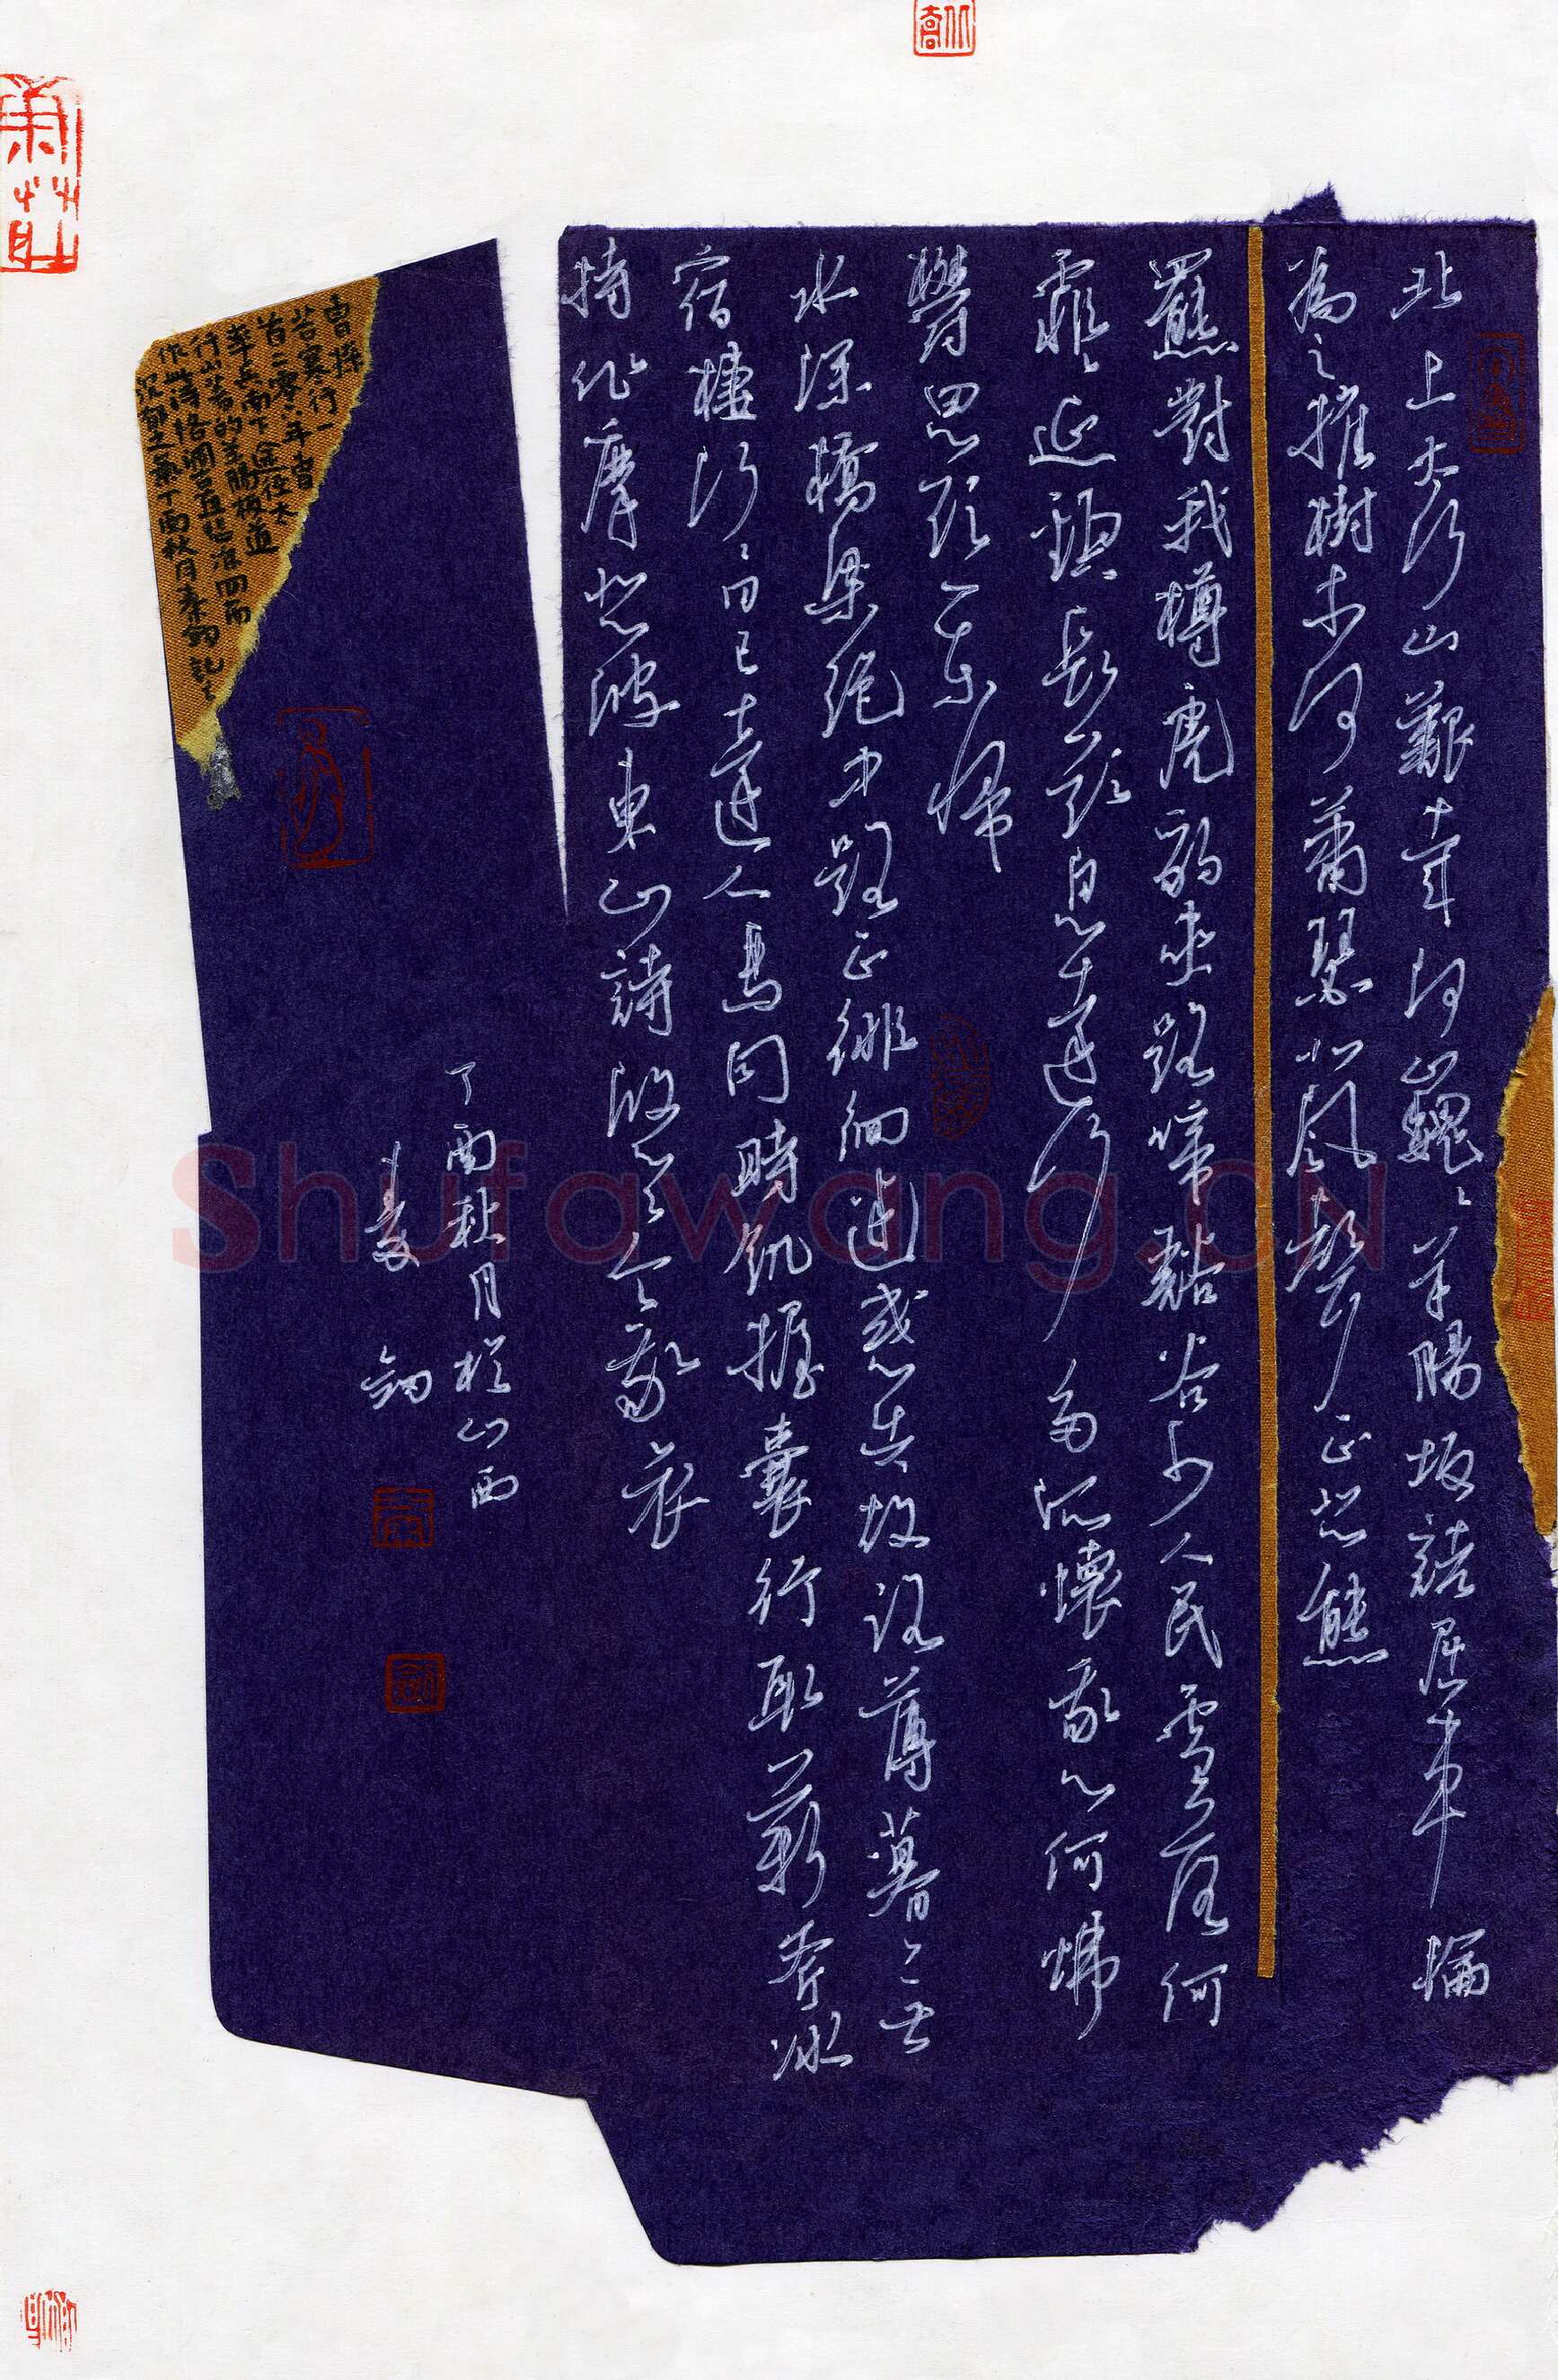 北上太行山艱哉何巍々羊腸坂詰屈車輪
為之摧樹木何蕭瑟北風聲正悲熊
羆對我蹲虎豹夾路啼谿谷少人民雪落何
霏々延頸長歎息遠行多所懷我心何怫
鬱思欲一東歸
水深橋梁絕中路正徘徊迷惑失故路薄暮々無
宿棲行々日已遠人馬同時飢擔囊行取薪斧冰
持作糜悲彼東山詩悠悠令我哀
丁酉秋月於山西
曹操
苦寒行一
首二零六年曹
率兵南下途径太
行山著的羊腸坂道
作此诗格調古直悲凉
沉郁之氣丁酉秋月記之
Shufawang.CN